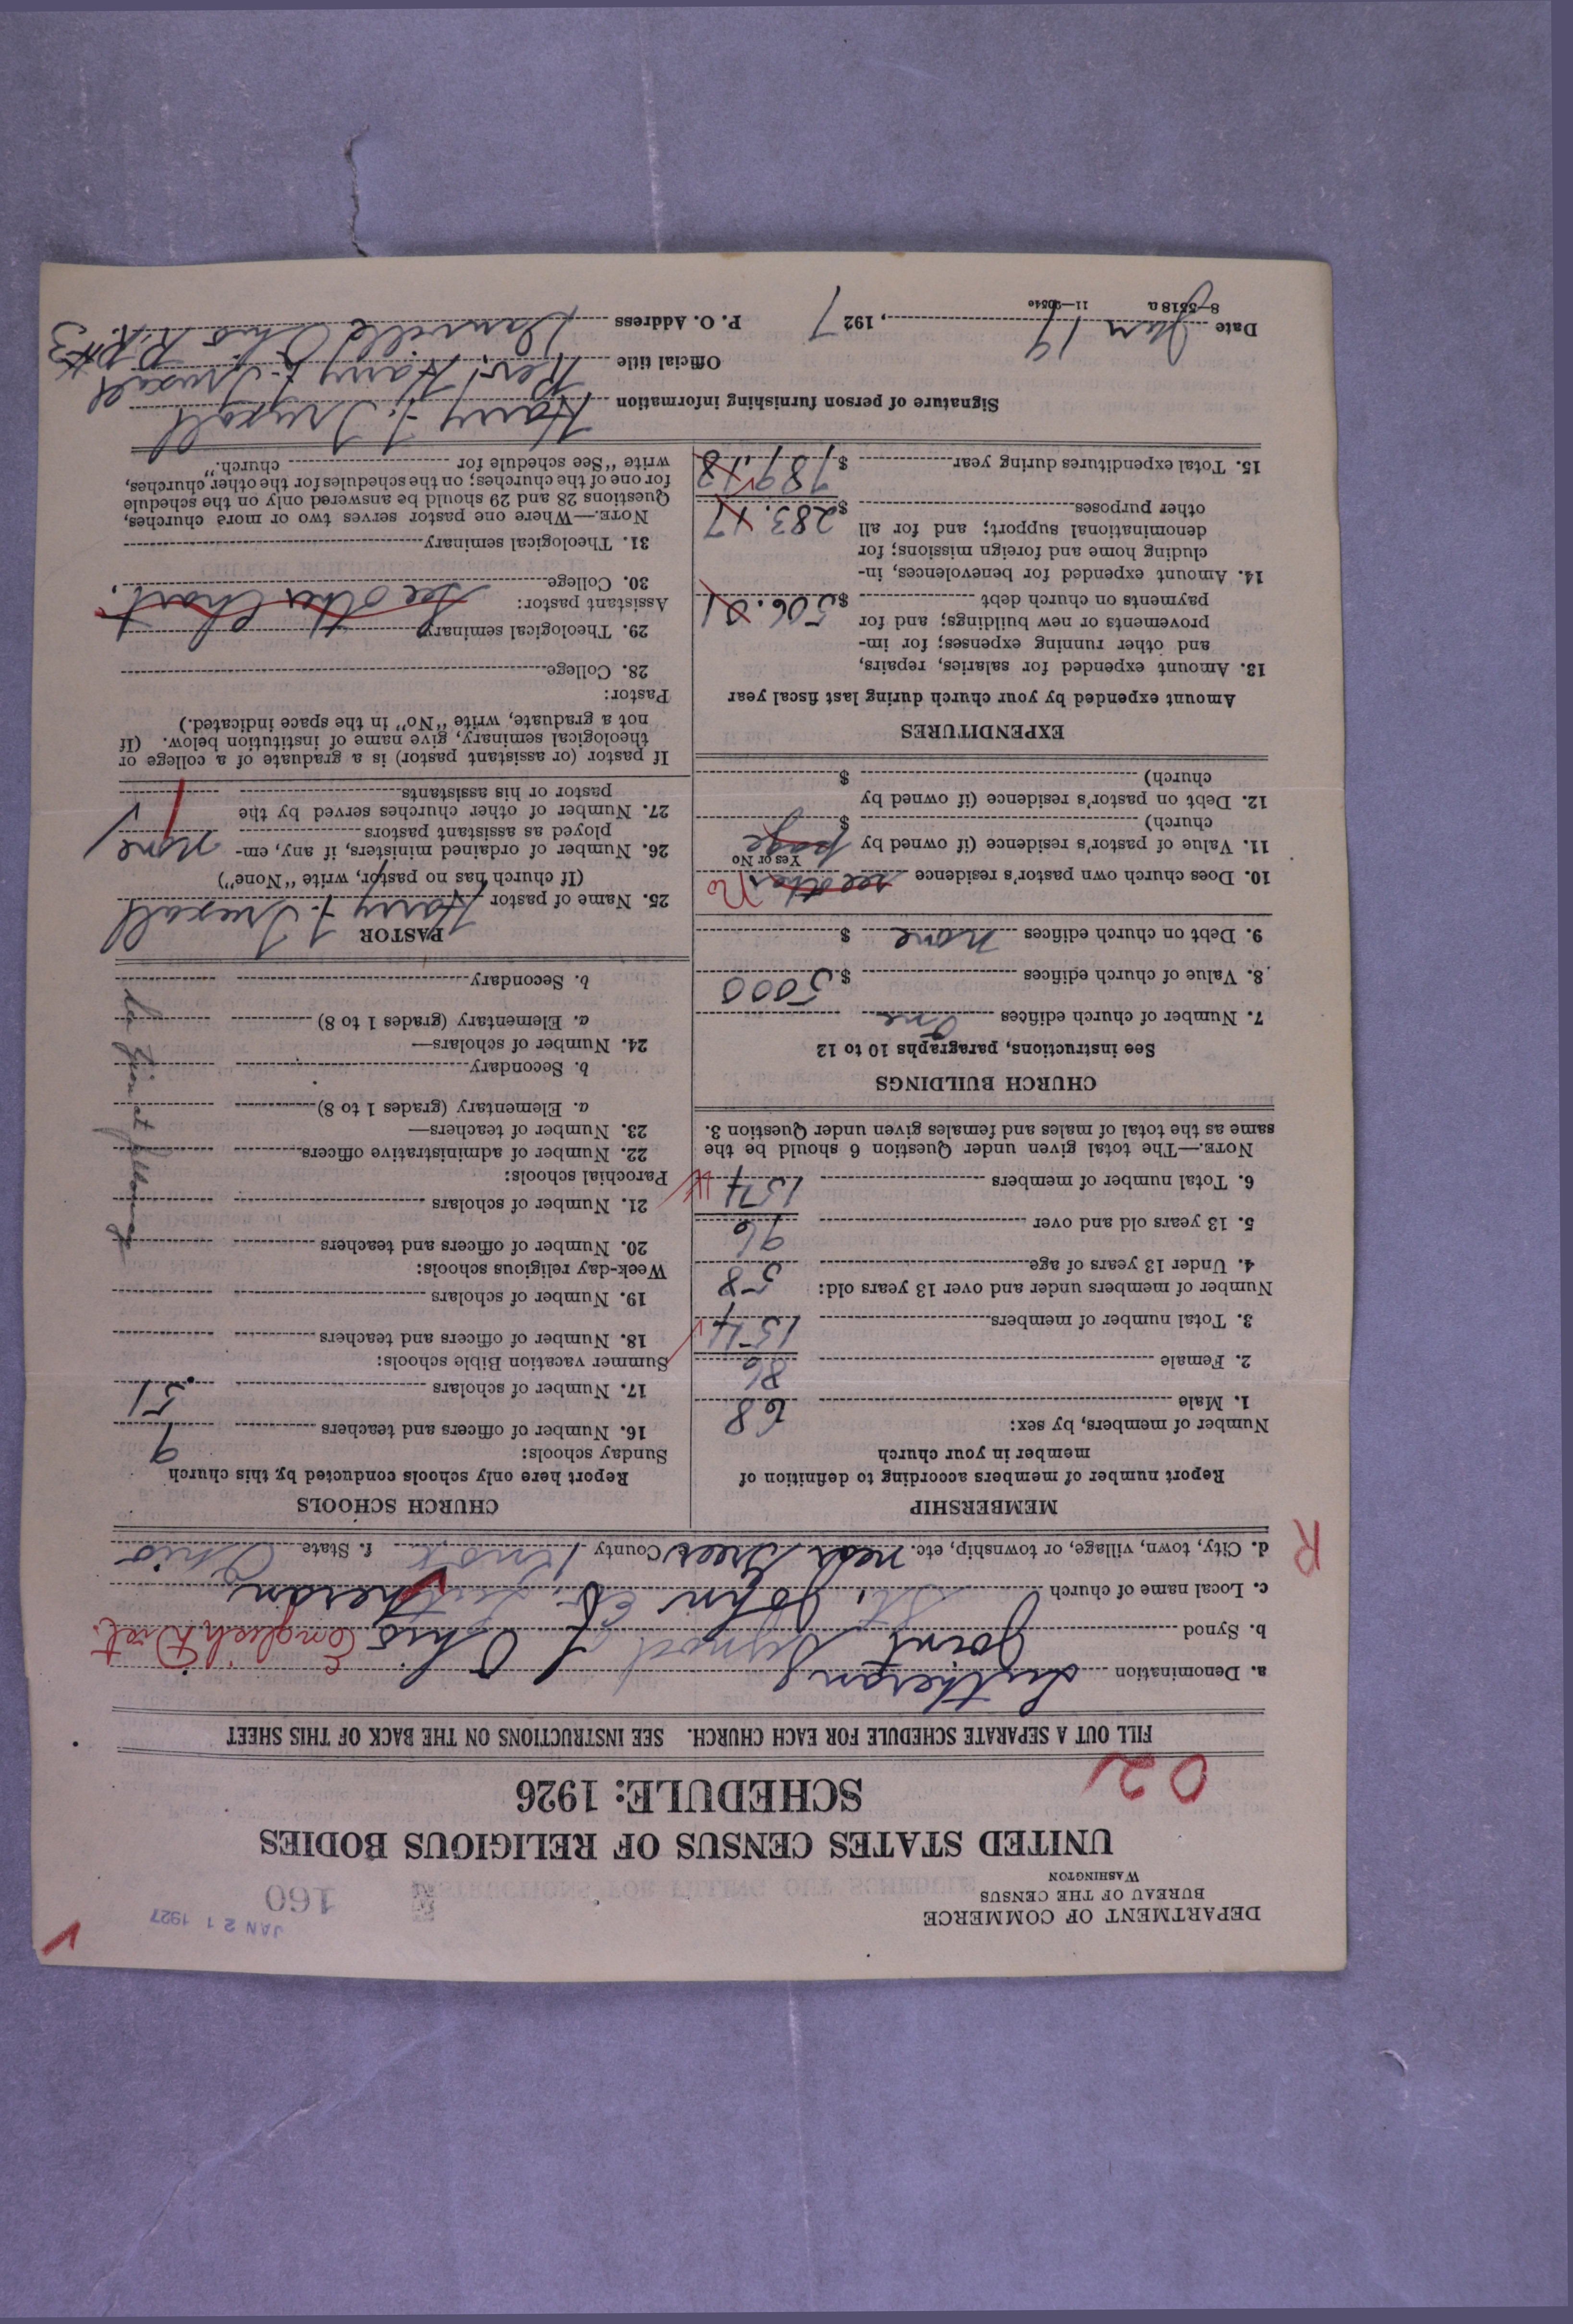 DEPARTMENT OF COMMERCE
BUREAU OF THE CENSUS
WASHINGTON
JAN 21 1927
160
UNITED STATES CENSUS OF RELIGIOUS BODIES
SCHEDULE: 1926
02
FILL OUT A SEPARATE SCHEDULE FOR EACH CHURCH. SEE INSTRUCTIONS ON THE BACK OF THIS SHEET
a. Denomination Lutheran
b. Synod Joint Synod of Ohio English Dist.
c. Local name of church St. John Ev. Lutheran
d. City, town, village, or township, etc. near Greer e. County Knox f. State Ohio
R
MEMBERSHIP
Report number of members according to definition of
member in your church
Number of members, by sex:
1. Male 68
2. Female 86
3. Total number of members 154
Number of members under and over 13 years old:
4. Under 13 years of age 58
5. 13 years old and over 96
6. Total number of members 154
NOTE.—The total given under Question 6 should be the
same as the total of males and females given under Question 3.
CHURCH BUILDINGS
See instructions, paragraphs 10 to 12
7. Number of church edifices One
8. Value of church edifices $ 5000
9. Debt on church edifices none $
10. Does church own pastor's residence see other No
Yes or No
11. Value of pastor's residence (if owned by page
church) $
12. Debt on pastor's residence (if owned by
church) $
EXPENDITURES
Amount expended by your church during last fiscal year
13. Amount expended for salaries, repairs,
and other running expenses; for im-
provements or new buildings; and for
payments on church debt $ 506.01
14. Amount expended for benevolences, in-
cluding home and foreign missions; for
denominational support; and for all
other purposes $ 283.17
15. Total expenditures during year $ 789.18
CHURCH SCHOOLS
Report here only schools conducted by this church
Sunday schools:
16. Number of officers and teachers 9
17. Number of scholars 51
Summer vacation Bible schools:
18. Number of officers and teachers
19. Number of scholars
Week-day religious schools:
20. Number of officers and teachers
21. Number of scholars
Parochial schools:
22. Number of administrative officers
23. Number of teachers—
a. Elementary (grades 1 to 8)
b. Secondary
24. Number of scholars—
a. Elementary (grades 1 to 8)
b. Secondary
PASTOR
25. Name of pastor Harry F. Truxall
(If church has no pastor, write "None")
26. Number of ordained ministers, if any, em-
ployed as assistant pastors none
27. Number of other churches served by the
pastor or his assistants 1
If pastor (or assistant pastor) is a graduate of a college or
theological seminary, give name of institution below. (If
not a graduate, write "No" in the space indicated.)
Pastor:
28. College
29. Theological seminary
Assistant pastor: see other Chart.
30. College
31. Theological seminary
NOTE.—Where one pastor serves two or more churches,
Questions 28 and 29 should be answered only on the schedule
for one of the churches; on the schedules for the other churches,
write "See schedule for church."
Signature of person furnishing information Harry F. Truxall
Official title Rev. Harry F. Truxall
Date Jan 19, 1927 P. O. Address Danville Ohio R.R. #3
8—5518a